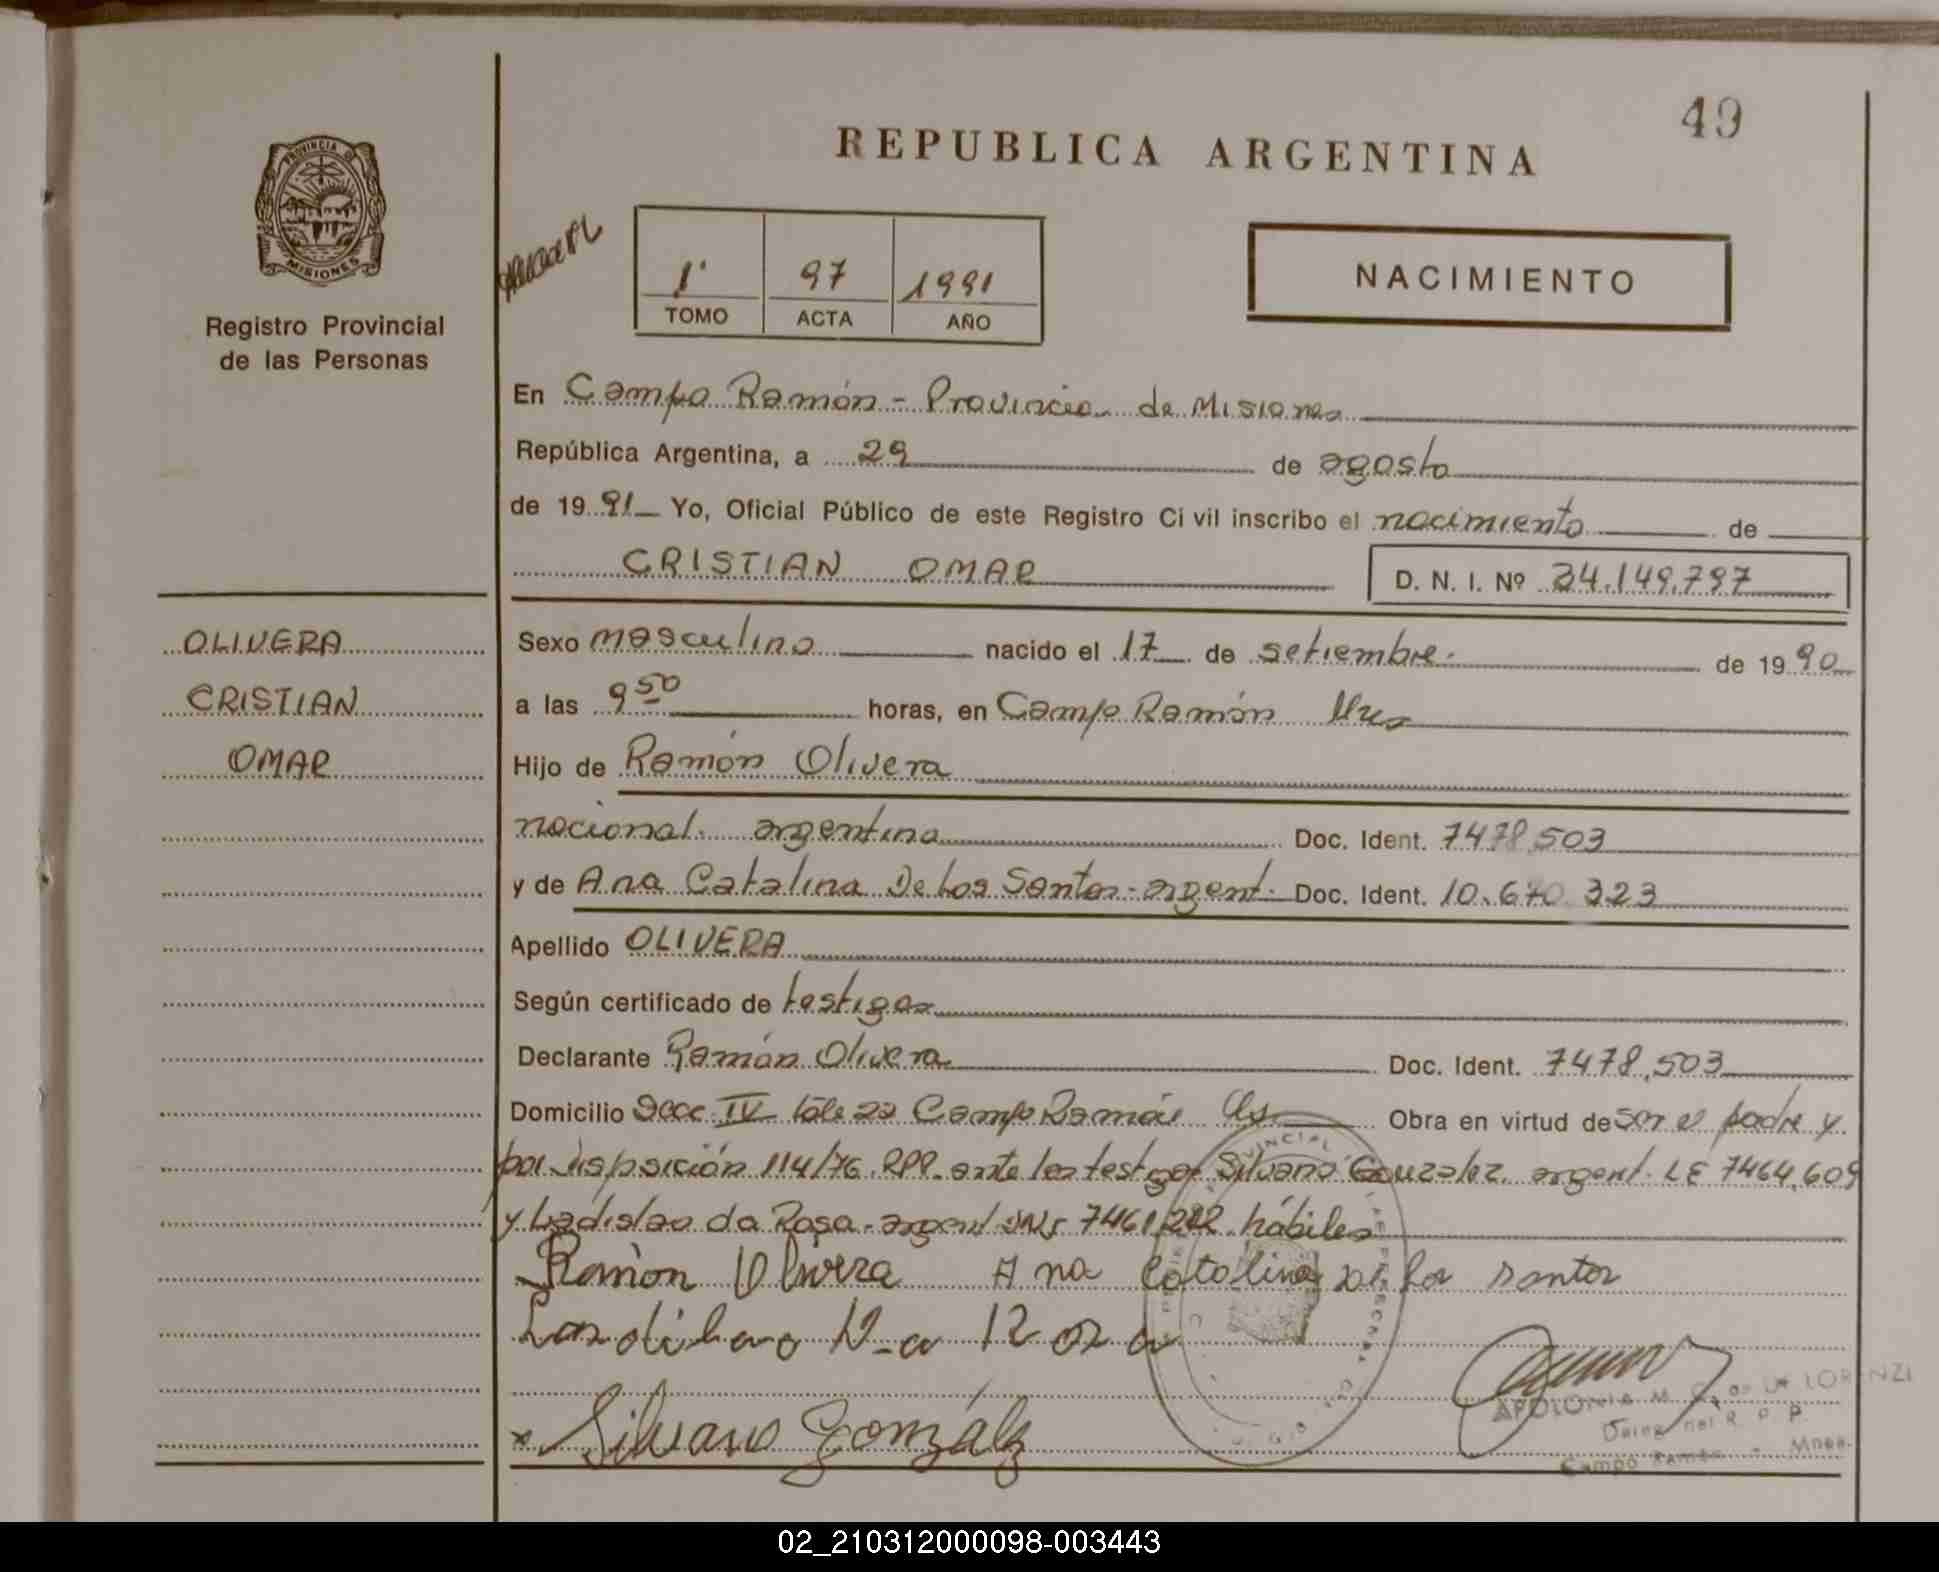 49
REPUBLICA ARGENTINA
PROVINCIA DE
MISIONES
Registro Provincial
de las Personas
1º 97 1991
TOMO ACTA AÑO
NACIMIENTO
En Campo Ramón - Provincia de Misiones
República Argentina, a 29 de agosto
de 19 91 Yo, Oficial Público de este Registro Ci vil inscribo el nacimiento de
CRISTIAN OMAR D. N. I. Nº 34.149.797
OLIVERA
CRISTIAN
OMAR
Sexo masculino nacido el 17 de setiembre. de 19 90
a las 9 50 horas, en Campo Ramón Mnes
Hijo de Ramón Olivera
nacional. argentina Doc. Ident. 7478.503
y de Ana Catalina De Los Santos - argent. Doc. Ident. 10.670.323
Apellido OLIVERA
Según certificado de testigos
Declarante Ramón Olivera Doc. Ident. 7478.503
Domicilio Secc IV lote 22 Campo Ramón Obra en virtud de ser el padre y
por disposición 114/76 RPP. ante los testigos Silvano Gonzalez argent. LE 7464.609
y Ladislao da Rosa - argent 7461.212 hábiles
Ramon Olivera Ana Catalina de los santos
Silvano González
APOLONIA M. LORENZI
R. P. P.
Campo Ramón - Mnes.
02_210312000098-003443